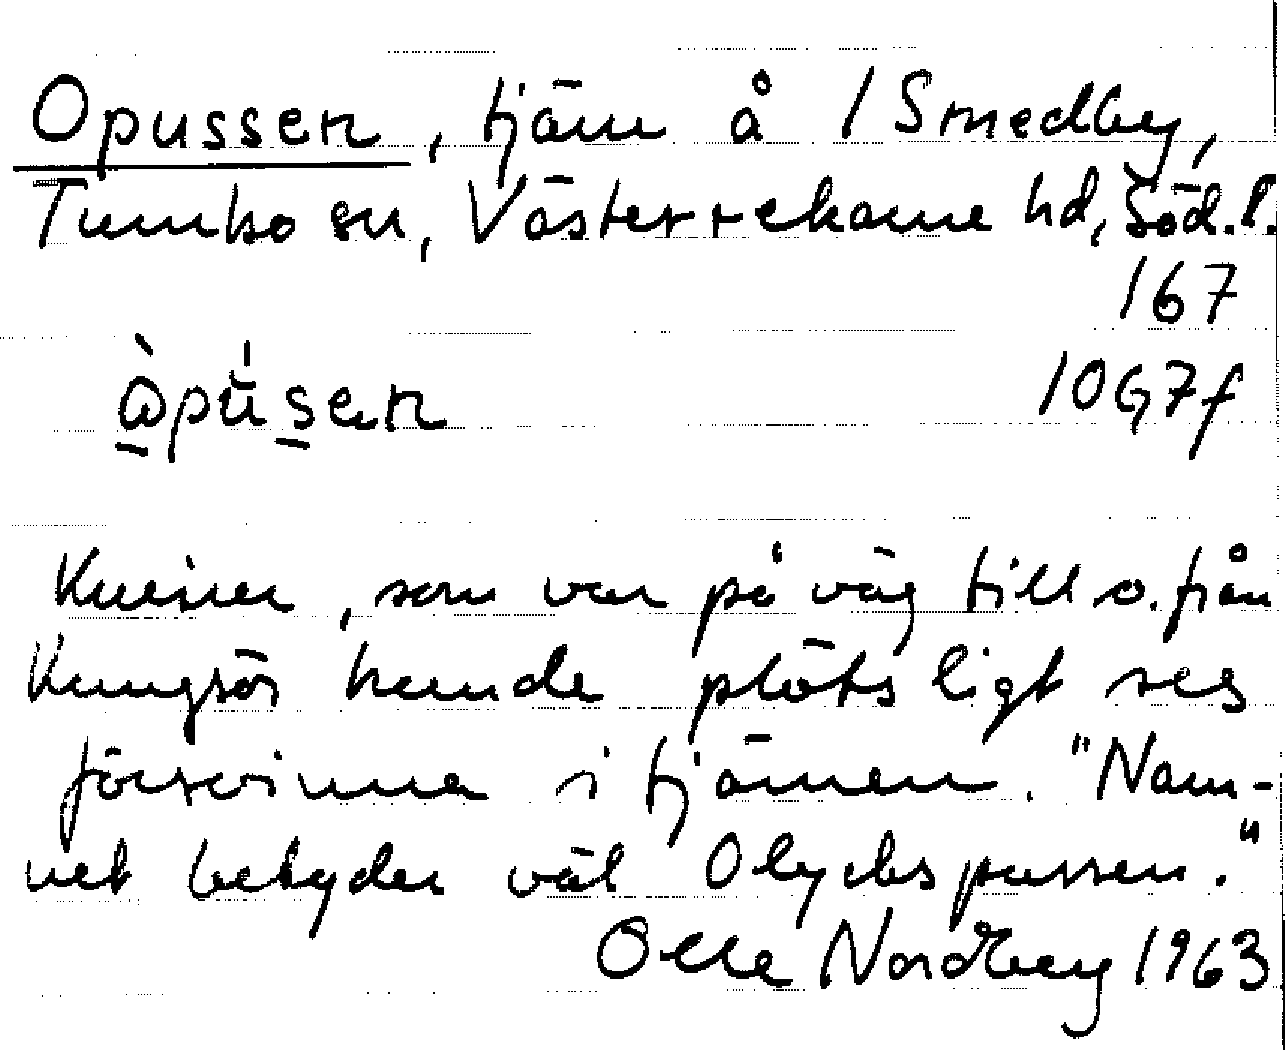 Opussen, tjärn å 1 Smedby,
Tumbo sn, Västerrekarne hd, Söd. l.
167
10G7f
Kusiner, som var på väg till o. från
Kungsör hende plötsligt ses
försvinna i tjärnen. "Nam-
net betyder väl Olyckspussen."
Olle Nordberg 1963